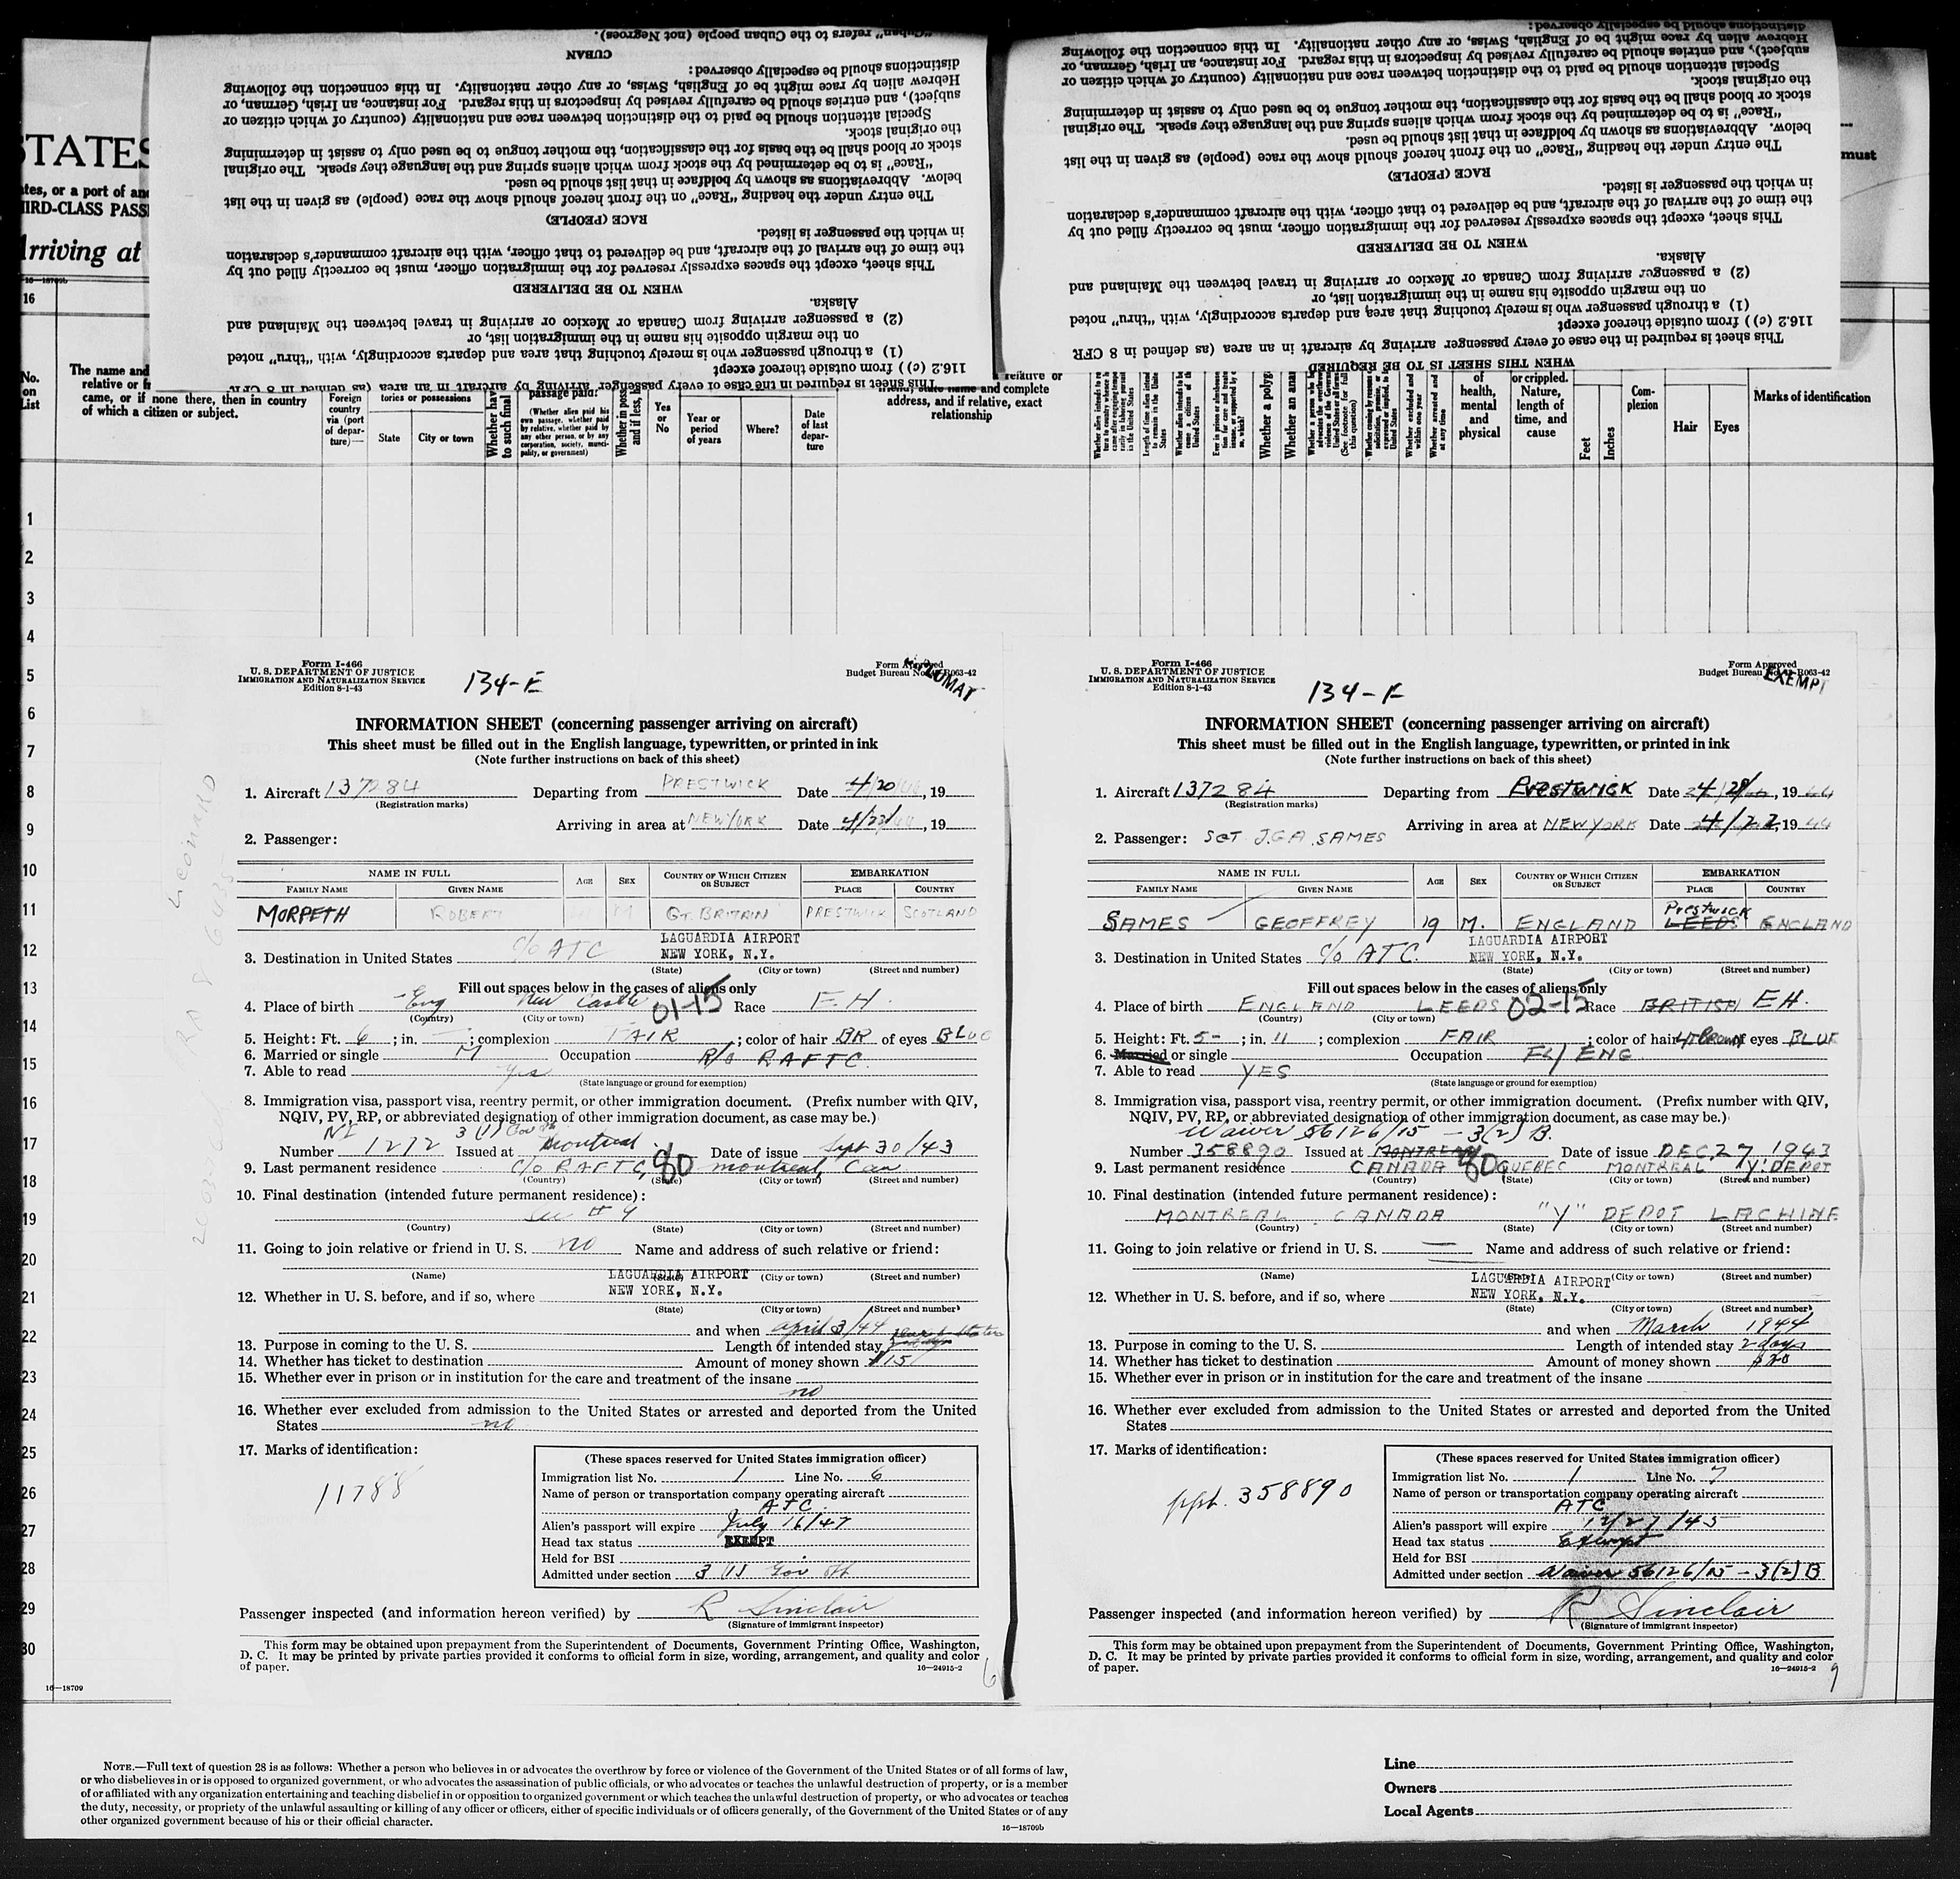 "Cuban" refers to the Cuban people (not Negroes).
CUBAN
distinctions should be especially observed:
Hebrew alien by race might be of English, Swiss, or any other nationality. In this connection the following
subject), and entries should be carefully revised by inspectors in this regard. For instance, an Irish, German, or
Special attention should be paid to the distinction between race and nationality (country of which citizen or
the original stock.
stock or blood shall be the basis for the classification, the mother tongue to be used only to assist in determining
"Race" is to be determined by the stock from which aliens spring and the language they speak. The original
below. Abbreviations as shown by boldface in that list should be used.
The entry under the heading "Race" on the front hereof should show the race (people) as given in the list
RACE (PEOPLE)
in which the passenger is listed.
the time of the arrival of the aircraft, and be delivered to that officer, with the aircraft commander's declaration
This sheet, except the spaces expressly reserved for the immigration officer, must be correctly filled out by
WHEN TO BE DELIVERED
Alaska.
(2) a passenger arriving from Canada or Mexico or arriving in travel between the Mainland and
on the margin opposite his name in the immigration list, or
(1) a through passenger who is merely touching that area and departs accordingly, with "thru" noted
116.2 (c)) from outside thereof except
This sheet is required in the case of every passenger arriving by aircraft in an area (as defined in 8 CFR
distinctions should be especially observed:
Hebrew alien by race might be of English, Swiss, or any other nationality. In this connection the following
subject), and entries should be carefully revised by inspectors in this regard. For instance, an Irish, German, or
Special attention should be paid to the distinction between race and nationality (country of which citizen or
the original stock.
stock or blood shall be the basis for the classification, the mother tongue to be used only to assist in determining
"Race" is to be determined by the stock from which aliens spring and the language they speak. The original
below. Abbreviations as shown by boldface in that list should be used.
The entry under the heading "Race" on the front hereof should show the race (people) as given in the list
RACE (PEOPLE)
in which the passenger is listed.
the time of the arrival of the aircraft, and be delivered to that officer, with the aircraft commander's declaration
This sheet, except the spaces expressly reserved for the immigration officer, must be correctly filled out by
WHEN TO BE DELIVERED
Alaska.
(2) a passenger arriving from Canada or Mexico or arriving in travel between the Mainland and
on the margin opposite his name in the immigration list, or
(1) a through passenger who is merely touching that area and departs accordingly, with "thru" noted
116.2 (c)) from outside thereof except
This sheet is required in the case of every passenger arriving by aircraft in an area (as defined in 8 CFR
WHEN THIS SHEET IS TO BE REQUIRED
STATES
or a port of
IRD-CLASS PASS
rriving at
must
16
No. on List
The name and
relative or
came, or if none there, then in country
of which a citizen or subject.
Foreign country via (port of departure)—
tories or possessions
State City or town
Whether have
to such final
passage paid?
(Whether alien paid his own passage, whether paid by relative, whether paid by any other person, or by any corporation, society, municipality, or government)
Whether in poss
and if less,
Yes or No
Year or period of years
Where?
Date of last departure
relative or
name and complete
address, and if relative, exact
relationship
Whether a polyg
Whether an ana
of health, mental and physical
or crippled. Nature, length of time, and cause
Feet
Inches
Complexion
Hair
Eyes
Marks of identification
1
2
3
4
5
6
7
8
9
10
11
12
13
14
15
16
17
18
19
20
21
22
23
24
25
26
27
28
29
30
16—18709
Form I-466
U. S. DEPARTMENT OF JUSTICE
IMMIGRATION AND NATURALIZATION SERVICE
Edition 8-1-43
134-F
Form Approved
Budget Bureau No. 43-R063-42
INFORMATION SHEET (concerning passenger arriving on aircraft)
This sheet must be filled out in the English language, typewritten, or printed in ink
(Note further instructions on back of this sheet)
1. Aircraft 137284 Departing from PRESTWICK Date 4/20, 19
(Registration marks)
Arriving in area at NEW YORK Date 4/22/, 19
2. Passenger:
NAME IN FULL AGE SEX COUNTRY OF WHICH CITIZEN OR SUBJECT EMBARKATION
FAMILY NAME GIVEN NAME PLACE COUNTRY
MORPETH ROBERT M GT. BRITAIN PRESTWICK SCOTLAND
3. Destination in United States c/o ATC LAGUARDIA AIRPORT
NEW YORK, N.Y.
(State) (City or town) (Street and number)
Fill out spaces below in the cases of aliens only
4. Place of birth Eng New Castle 01-15 Race E.H.
(Country) (City or town)
5. Height: Ft. 6; in. —; complexion FAIR; color of hair BR of eyes BLUE
6. Married or single M Occupation R/O RAFTC.
7. Able to read yes
(State language or ground for exemption)
8. Immigration visa, passport visa, reentry permit, or other immigration document. (Prefix number with QIV,
NQIV, PV, RP, or abbreviated designation of other immigration document, as case may be.)
Number 1272 Issued at Montreal Date of issue Sept 30/43
9. Last permanent residence c/o RAFTC, 80 Montreal, Can
(Country) (State) (City or town) (Street and number)
10. Final destination (intended future permanent residence):
See # 4
(Country) (State) (City or town) (Street and number)
11. Going to join relative or friend in U. S. no Name and address of such relative or friend:
(Name) (State) (City or town) (Street and number)
12. Whether in U. S. before, and if so, where LAGUARDIA AIRPORT
NEW YORK, N.Y.
(State) (City or town) (Street and number)
and when April 3/44
13. Purpose in coming to the U. S. Length of intended stay
14. Whether has ticket to destination Amount of money shown $15
15. Whether ever in prison or in institution for the care and treatment of the insane
no
16. Whether ever excluded from admission to the United States or arrested and deported from the United
States no
17. Marks of identification:
11788
(These spaces reserved for United States immigration officer)
Immigration list No. 1 Line No. 6
Name of person or transportation company operating aircraft
ATC.
Alien's passport will expire July 16/47
Head tax status EXEMPT
Held for BSI
Admitted under section 3 (1) Gov Off
Passenger inspected (and information hereon verified) by R Sinclair
(Signature of immigrant inspector)
This form may be obtained upon prepayment from the Superintendent of Documents, Government Printing Office, Washington,
D. C. It may be printed by private parties provided it conforms to official form in size, wording, arrangement, and quality and color
of paper. 16—24915-2
6
Form I-466
U. S. DEPARTMENT OF JUSTICE
IMMIGRATION AND NATURALIZATION SERVICE
Edition 8-1-43
134-F
Form Approved
Budget Bureau No. 43-R063-42
EXEMPT
INFORMATION SHEET (concerning passenger arriving on aircraft)
This sheet must be filled out in the English language, typewritten, or printed in ink
(Note further instructions on back of this sheet)
1. Aircraft 137284 Departing from Prestwick Date 4/, 19 44
(Registration marks)
Arriving in area at NEW YORK Date 4/22, 19 44
2. Passenger: SGT J.G.A. SAMES
NAME IN FULL AGE SEX COUNTRY OF WHICH CITIZEN OR SUBJECT EMBARKATION
FAMILY NAME GIVEN NAME PLACE COUNTRY
Prestwick
SAMES GEOFFREY 19 M. ENGLAND LEEDS ENGLAND
3. Destination in United States c/o ATC. LAGUARDIA AIRPORT
NEW YORK, N.Y.
(State) (City or town) (Street and number)
Fill out spaces below in the cases of aliens only
4. Place of birth ENGLAND LEEDS 02-15 Race BRITISH EH.
(Country) (City or town)
5. Height: Ft. 5-; in. 11; complexion FAIR; color of hair LT BROWN of eyes BLUE
6. Married or single Occupation FL/ENG
7. Able to read YES
(State language or ground for exemption)
8. Immigration visa, passport visa, reentry permit, or other immigration document. (Prefix number with QIV,
NQIV, PV, RP, or abbreviated designation of other immigration document, as case may be.)
Waiver 56126/15 - 3(2) B.
Number 358890 Issued at MONTREAL Date of issue DEC. 27 1943
9. Last permanent residence CANADA 80 QUEBEC MONTREAL Y. DEPOT
(Country) (State) (City or town) (Street and number)
10. Final destination (intended future permanent residence):
MONTREAL CANADA "Y" DEPOT LACHINE
(Country) (State) (City or town) (Street and number)
11. Going to join relative or friend in U. S. — Name and address of such relative or friend:
(Name) (City or town) (Street and number)
12. Whether in U. S. before, and if so, where LAGUARDIA AIRPORT
NEW YORK, N.Y.
(State) (City or town) (Street and number)
and when March 1944
13. Purpose in coming to the U. S. Length of intended stay 2 days
14. Whether has ticket to destination Amount of money shown $20
15. Whether ever in prison or in institution for the care and treatment of the insane
16. Whether ever excluded from admission to the United States or arrested and deported from the United
States
17. Marks of identification:
ppt. 358890
(These spaces reserved for United States immigration officer)
Immigration list No. 1 Line No. 7
Name of person or transportation company operating aircraft
ATC
Alien's passport will expire 12/27/45
Head tax status Exempt
Held for BSI
Admitted under section Waiver 56126/15 - 3(2) B
Passenger inspected (and information hereon verified) by R Sinclair
(Signature of immigrant inspector)
This form may be obtained upon prepayment from the Superintendent of Documents, Government Printing Office, Washington,
D. C. It may be printed by private parties provided it conforms to official form in size, wording, arrangement, and quality and color
of paper. 16—24915-2
NOTE.—Full text of question 28 is as follows: Whether a person who believes in or advocates the overthrow by force or violence of the Government of the United States or of all forms of law,
or who disbelieves in or is opposed to organized government, or who advocates the assassination of public officials, or who advocates or teaches the unlawful destruction of property, or is a member
of or affiliated with any organization entertaining and teaching disbelief in or opposition to organized government or which teaches the unlawful destruction of property, or who advocates or teaches
the duty, necessity, or propriety of the unlawful assaulting or killing of any officer or officers, either of specific individuals or of officers generally, of the Government of the United States or of any
other organized government because of his or their official character.
16—18709b
Line
Owners
Local Agents